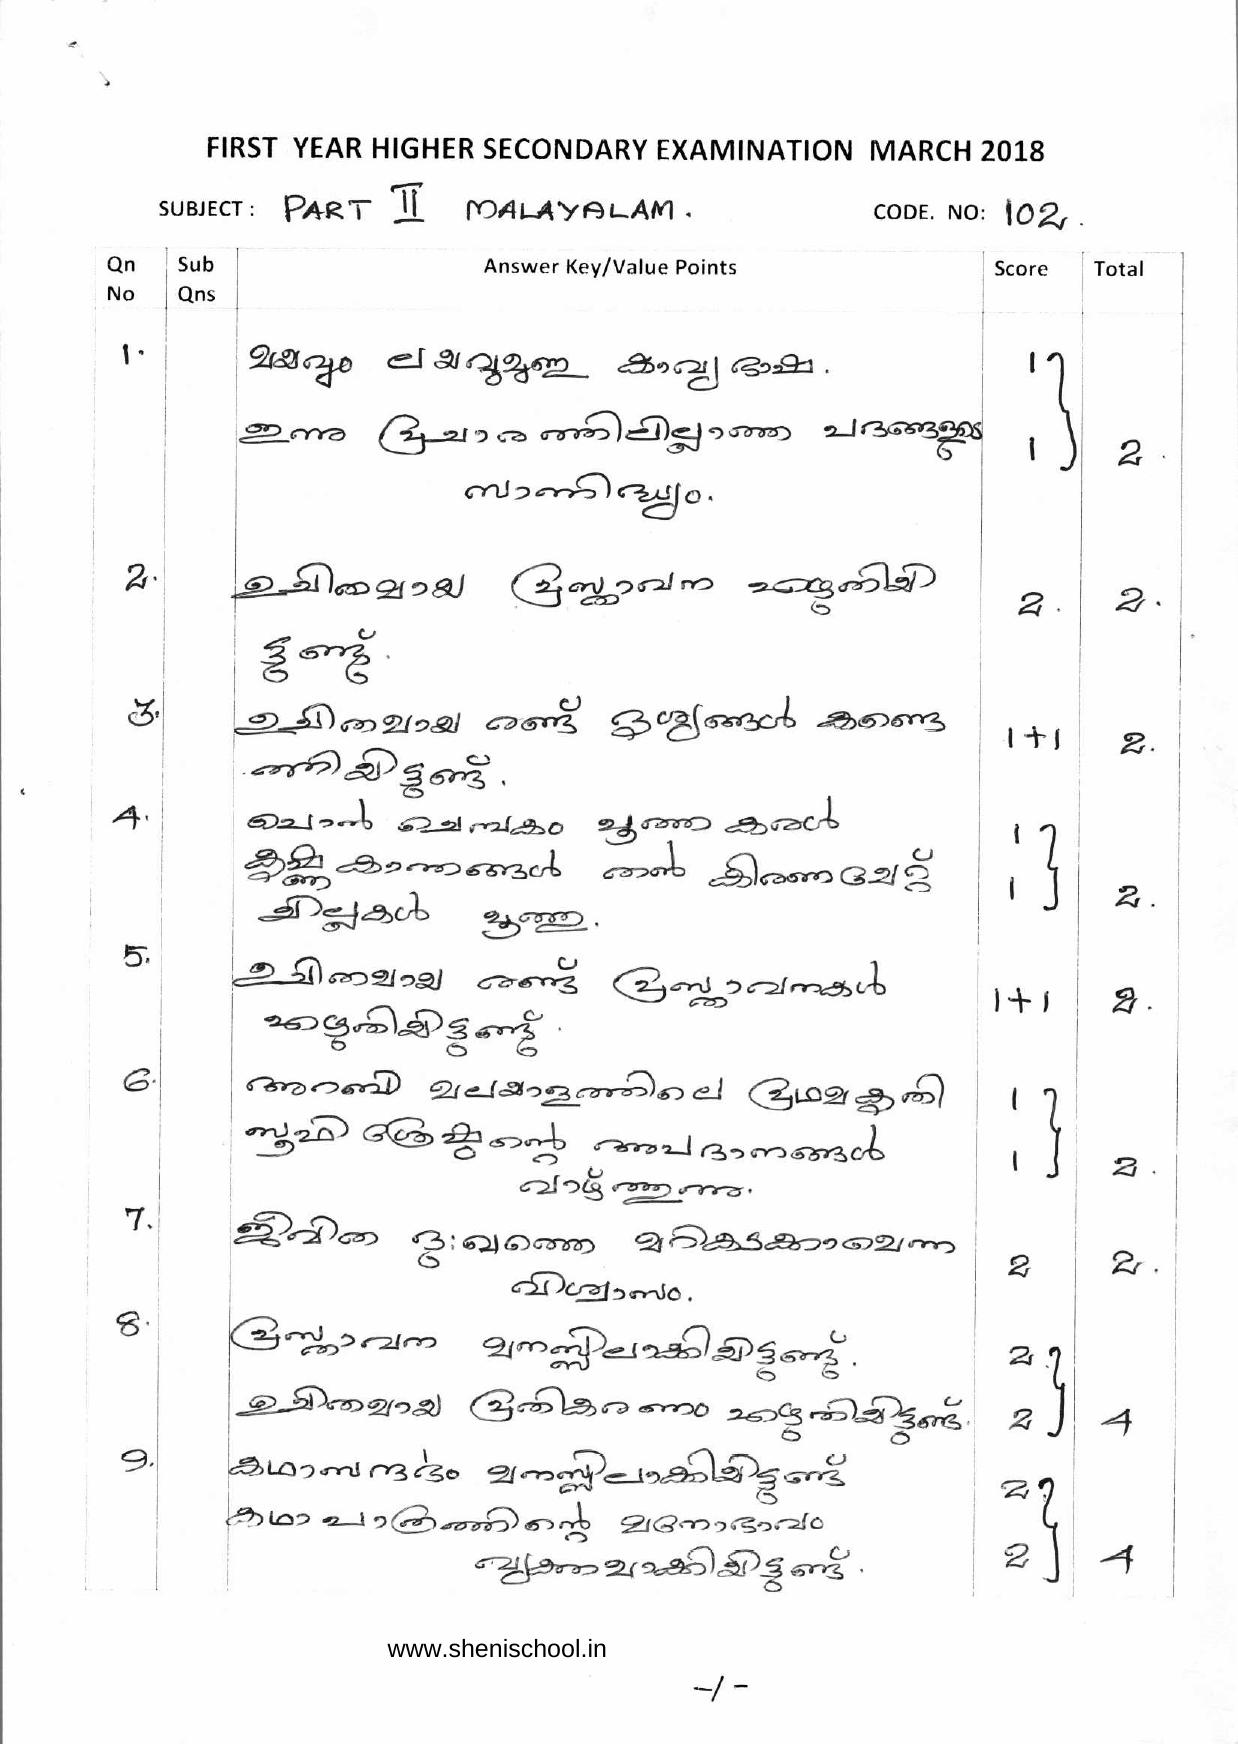 FIRST YEAR HIGHER SECONDARY EXAMINATION MARCH 2018
SUBJECT : PART II MALAYALAM. CODE. NO: 102.
Qn No Sub Qns Answer Key/Value Points Score Total
1. മയവും ലയവുമുള്ള കാവ്യഭാഷ. 1
ഇന്നു പ്രചാരത്തിലില്ലാത്ത പദങ്ങളുടെ 1 2
സാന്നിദ്ധ്യം.
2. ഉചിതമായ പ്രസ്താവന എഴുതിയി 2. 2.
ട്ടുണ്ട്.
3. ഉചിതമായ രണ്ട് ദൃശ്യങ്ങൾ കണ്ടെ 1+1 2.
ത്തിയിട്ടുണ്ട്.
4. പൊൻ ചെമ്പകം പൂത്ത കരൾ 1
കൃഷ്ണകാന്തങ്ങൾ തൻ കിരണമേറ്റ് 1 2.
ചില്ലകൾ പൂത്തു.
5. ഉചിതമായ രണ്ട് പ്രസ്താവനകൾ 1+1 2.
എഴുതിയിട്ടുണ്ട്.
6. അറബി മലയാളത്തിലെ പ്രഥമകൃതി 1
സൂഫി ശ്രേഷ്ഠന്റെ അപദാനങ്ങൾ 1 2.
വാഴ്ത്തുന്നു.
7. ജീവിത ദുഃഖത്തെ മറികടക്കാമെന്ന 2 2.
വിശ്വാസം.
8. പ്രസ്താവന മനസ്സിലാക്കിയിട്ടുണ്ട്. 2
ഉചിതമായ പ്രതികരണം എഴുതിയിട്ടുണ്ട്. 2 4
9. കഥാസന്ദർഭം മനസ്സിലാക്കിയിട്ടുണ്ട് 2
കഥാപാത്രത്തിന്റെ മനോഭാവം
വ്യക്തമാക്കിയിട്ടുണ്ട്. 2 4
www.shenischool.in
-/-